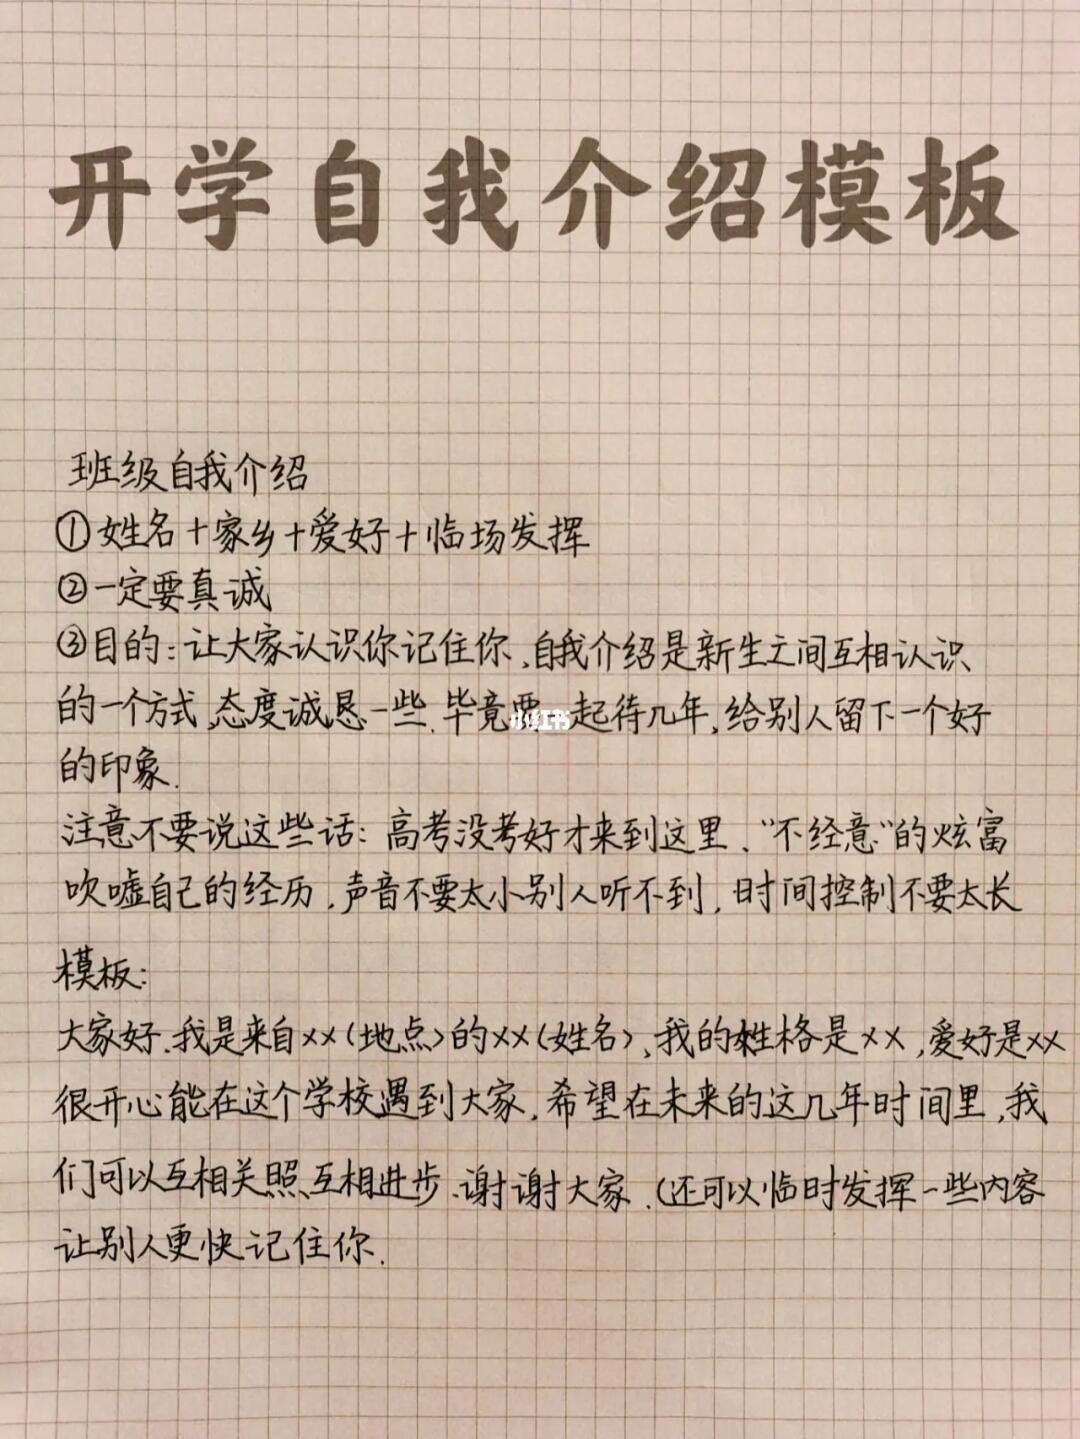 开学自我介绍模板
班级自我介绍
①姓名+家乡+爱好+临场发挥
②一定要真诚
③目的:让大家认识你记住你,自我介绍是新生之间互相认识
的一个方式,态度诚恳一些.毕竟要一起待几年,给别人留下一个好
小红书
的印象.
注意不要说这些话:高考没考好才来到这里、"不经意"的炫富
吹嘘自己的经历,声音不要太小别人听不到,时间控制不要太长
模板:
大家好.我是来自××(地点)的××(姓名),我的性格是××,爱好是××
很开心能在这个学校遇到大家,希望在未来的这几年时间里,我
们可以互相关照互相进步.谢谢大家.(还可以临时发挥一些内容
让别人更快记住你.